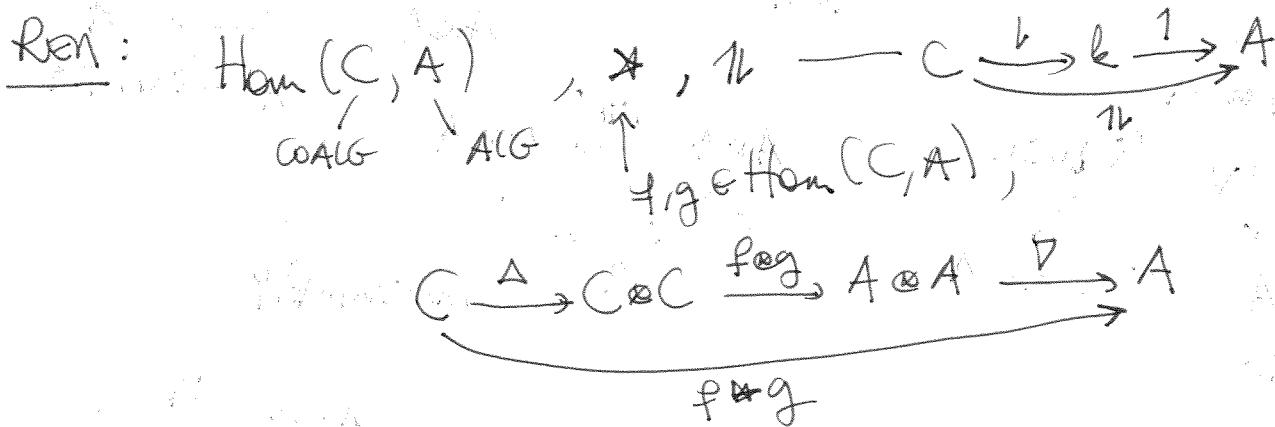 REM: Hom(C, A), ⋆, 𝟙 — C → k → A
1
𝟙
COALG ALG ↑
f, g ∈ Hom(C, A),
Δ f⊗g ∇
C → C⊗C → A⊗A → A
f⋆g